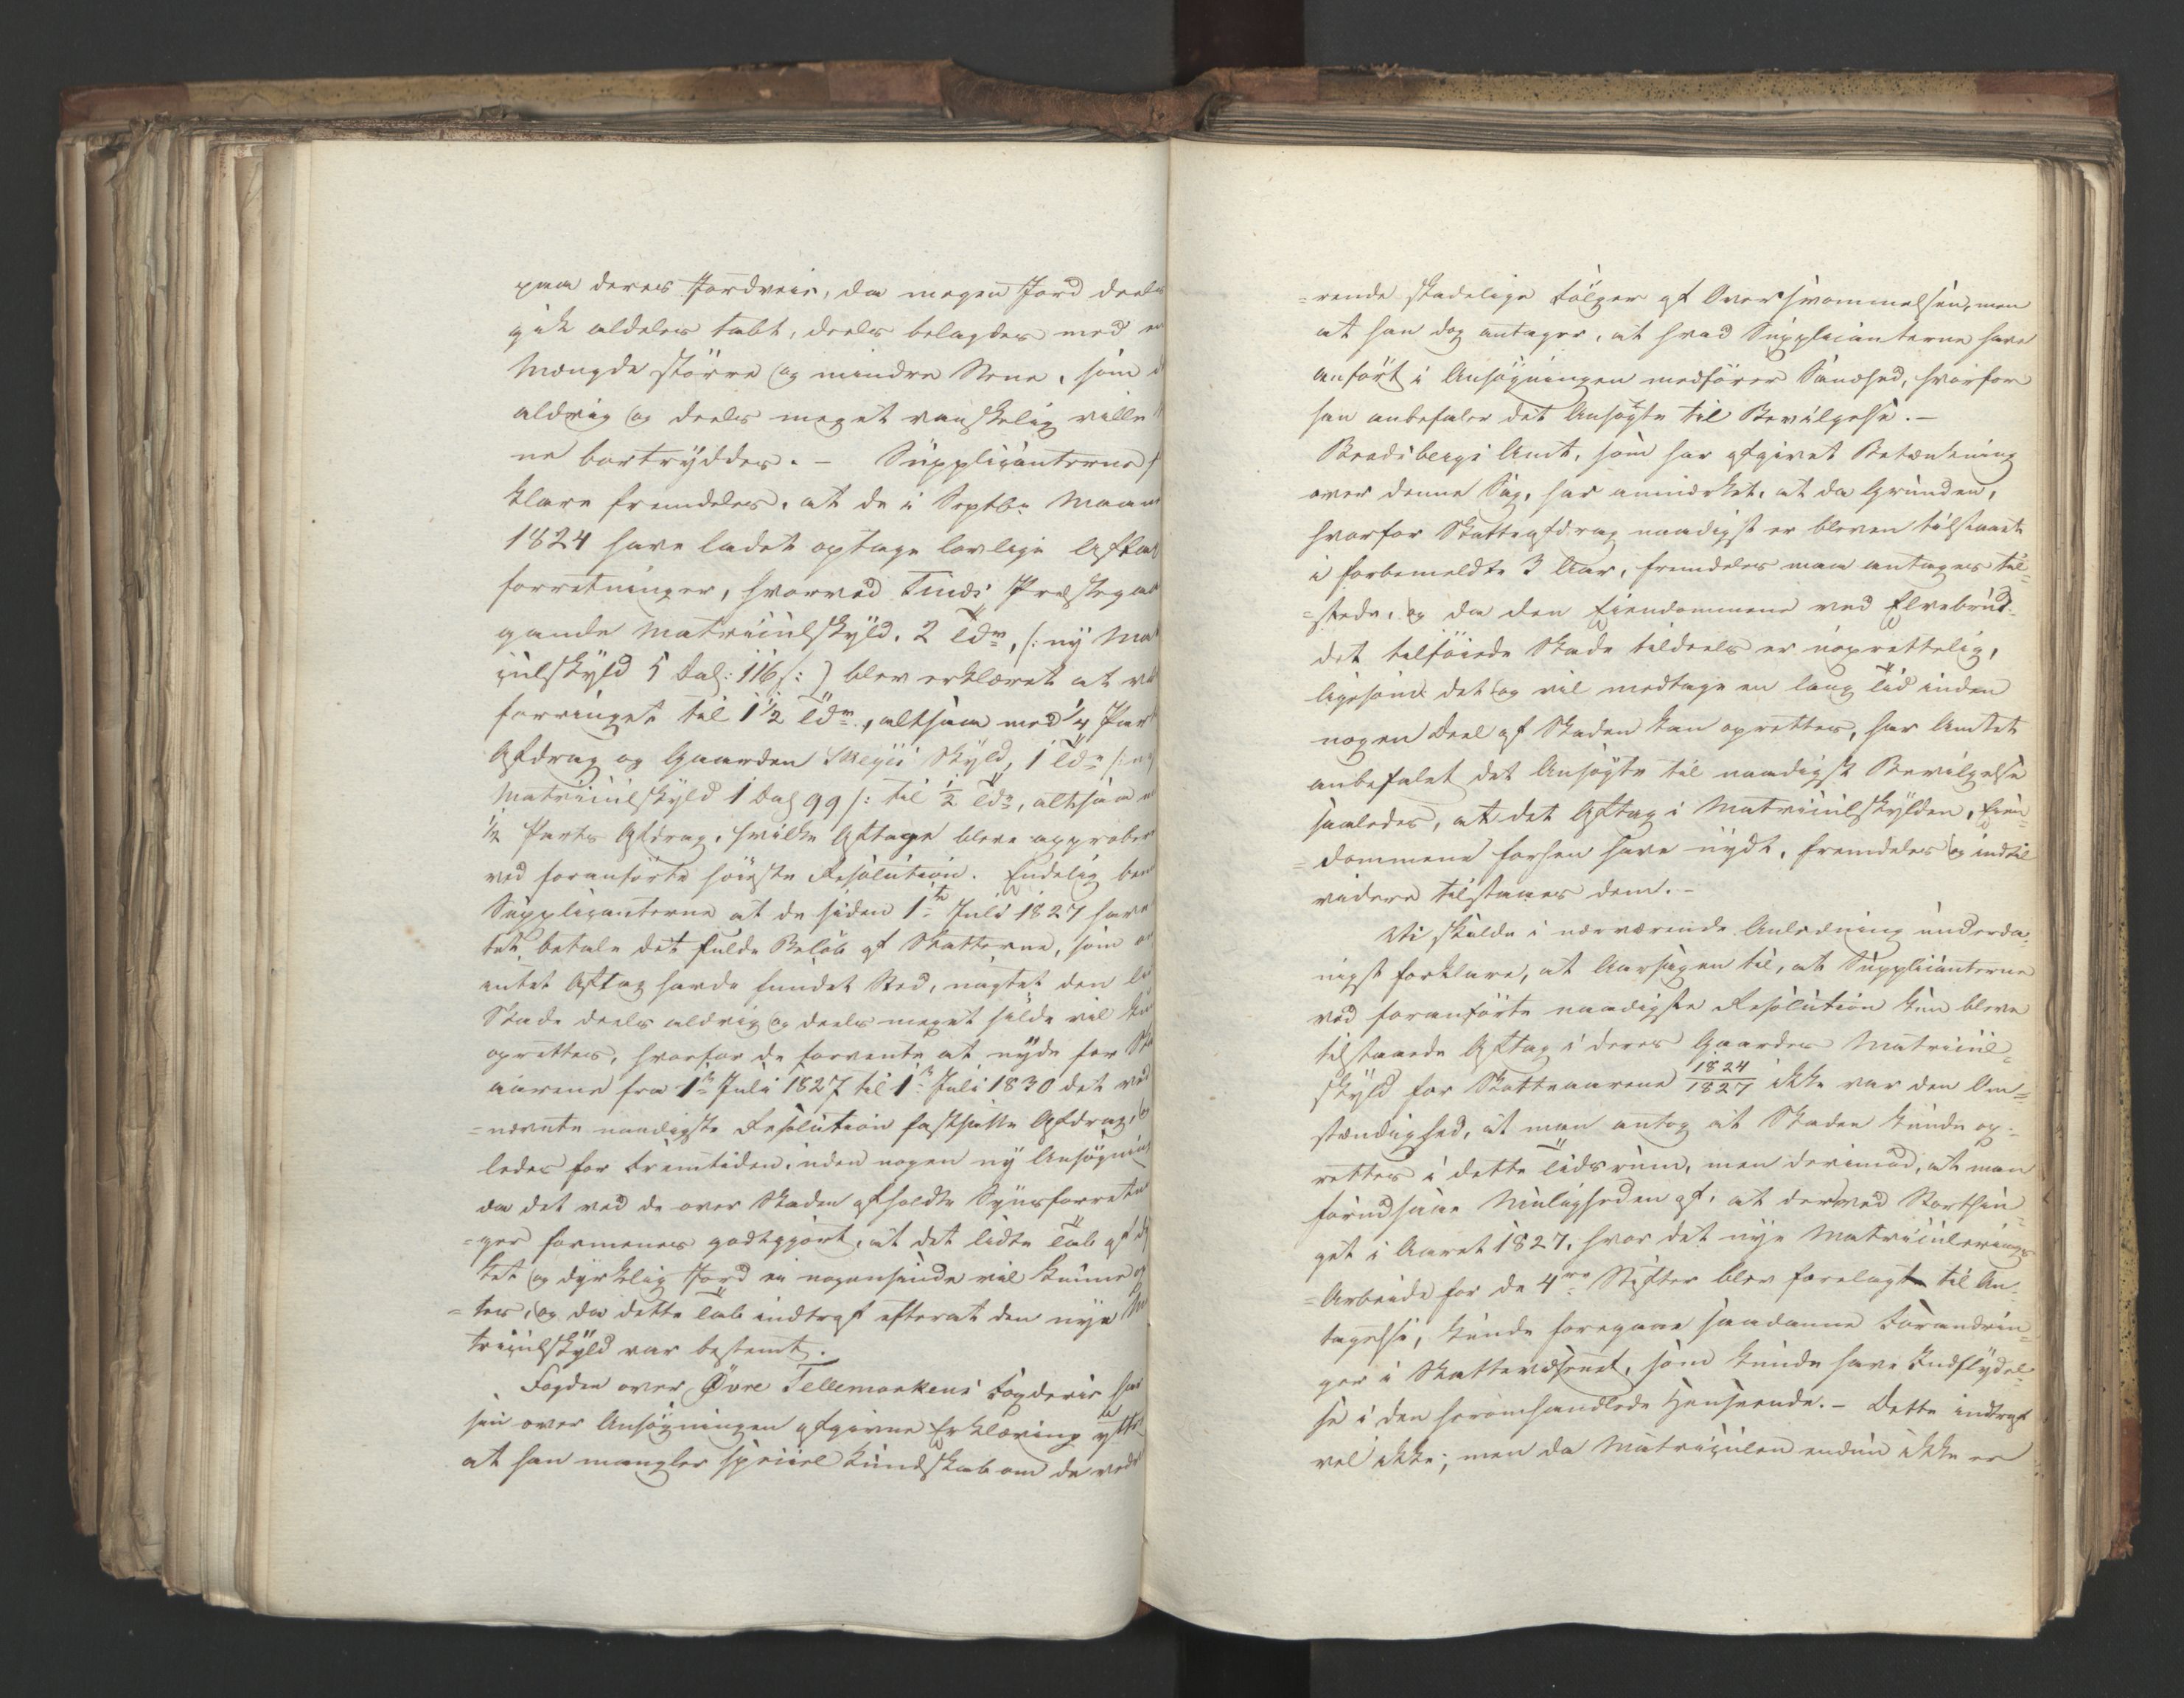 paa deres Jordvei, da megen Jord deels
gik aldeles tabt, deels belagdes med en
Mængde större og mindre Stene, som d
aldrig og deels meget vanskelig ville k
ne bortryddes. – Suppliçanterne f
klare fremdeles, at de i Septbr Maan
1824 have ladet optage lovlige Aftax
forretninger, hvorved Tinds Præstegaa
gamle Matriculskyld, 2 Tdr, /: ny Mat
çulskyld 5 Dal: 116 s: ) blev erklæret at væ
forringet til 1 1/2 Tdr, altsaa med 1/4 Part
Afdrag og Gaarden Meyes Skyld, 1 Td /: ny
Matriculskyld 1 Dal 99 s: til 1/2 Td, altsaa m
1/2 Parts Afdrag, hvilke Aftage bleve approber
ved foranförte höieste Resolution. Endelig bem
Suppliçanterne at de siden 1te Juli 1827 have
tet betale det fulde Belöb af Skatterne, som om
intet Aftag havde fundet Sted, uagtet den li
Skade deels aldrig og deels meget silde vil kun
oprettes, hvorfor de forvente at nyde for Ska
aarene fra 1te Juli 1827 til 1te Juli 1830 det ved
=nævnte naadigste Resolution fastsatte Afdrag, lig
ledes for Fremtiden, uden nogen ny Ansögning
da det ved de over Skaden afholdte Synsforretn
=ger formenes godtgjort, at det lidte Tab af dy
ket og dyrkelig Jord ei nogensinde vil kunne op
=tes, og da dette Tab indtraf efterat den nye Ma
triçulskyld var bestemt.
Fogden over Øvre Tellemarkens Fogderie har
sin over Ansögningen afgivne Erklæring yttr
at han mangler speciel Kundskab om de vedv
=rende skadelige Fölger af Oversvömmelsen, men
at han dog antager, at hvad Supplicanterne have
anfört i Ansögningen medförer Sandhed, hvorfor
han anbefaler det Ansögte til Bevilgelse. –
Bradsbergs Amt, som har afgivet Betænkning
over denne Sag, har anmærket, at da Grunden,
hvorfor Skatteafdrag naadigst er bleven tilstaaet
i forbemeldte 3 Aar, fremdeles maa antages til=
=stede, og da den Eiendommene ved Elvebrud=
det tilföiede Skade tildeels er uoprettelig,
ligesom det og vil medtage en lang Tid inden
nogen Deel af Skaden kan oprettes, har Amtet
anbefalet det Ansögte til naadigst Bevilgelse
saaledes, at det Aftag i Matriculskylden, Eien=
=dommene forhen have nydt, fremdeles og indtil
videre tilstaaes dem. –
Vi skulde i nærværende Anledning underda=
nigst forklare, at Aarsagen til, at Supplicanterne
ved foranförte naadigste Resolution kun bleve
tilstaaede Aftag i deres Gaardes Matricul=
skyld for Skatteaarene 1824/1827 ikke var den Om=
stændighed, at man antog at Skaden kunde op=
rettes i dette Tidsrum, men derimod, at man
forudsaae Muligheden af, at der ved Storthin=
get i Aaret 1827, hvor det nye Matriculerings
=Arbeide for de 4re Stifter blev forelagt til An=
tagelse, kunde foregaae saadanne Forandrin=
ger i Skattevæsenet, som kunde have Indflydel=
se i den heromhandlede Henseende. – Dette indtraf
vel ikke; men da Matriculen endnu ikke er